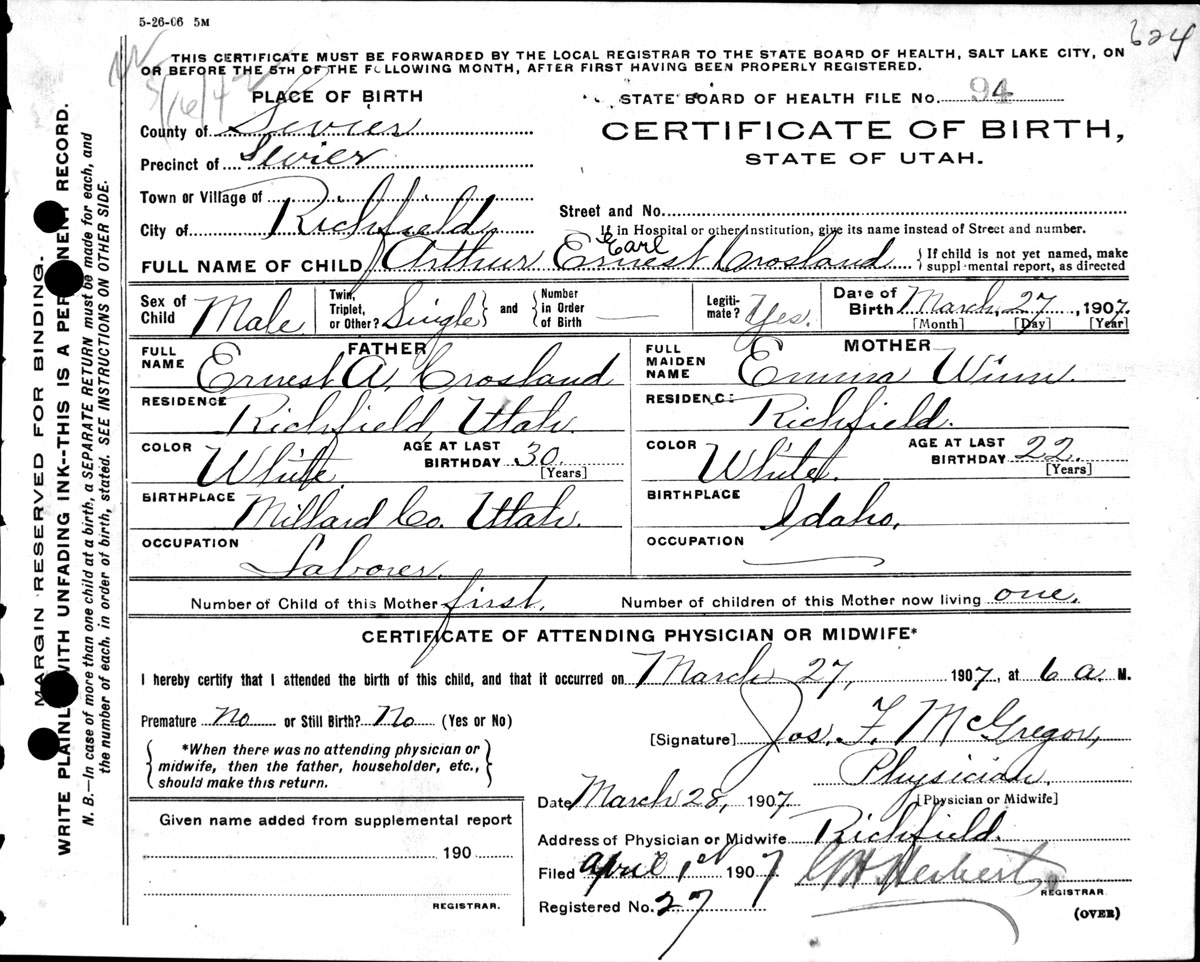 5-26-06 5M
624
THIS CERTIFICATE MUST BE FORWARDED BY THE LOCAL REGISTRAR TO THE STATE BOARD OF HEALTH, SALT LAKE CITY, ON
OR BEFORE THE 5TH OF THE FOLLOWING MONTH, AFTER FIRST HAVING BEEN PROPERLY REGISTERED.
5/16/42
PLACE OF BIRTH
STATE BOARD OF HEALTH FILE No. 94
County of Sevier
CERTIFICATE OF BIRTH,
Precinct of Sevier
STATE OF UTAH.
Town or Village of
Street and No.
City of Richfield
If in Hospital or other Institution, give its name instead of Street and number.
Earl
FULL NAME OF CHILD Arthur Ernest Crosland { If child is not yet named, make
supplemental report, as directed
Sex of Child Male
Twin, Triplet, or Other? Single } and { Number in Order of Birth —
Legitimate? Yes.
Date of Birth March, 27, 1907.
[Month] [Day] [Year]
FATHER
FULL NAME Ernest A. Crosland
RESIDENCE Richfield, Utah.
COLOR White. AGE AT LAST BIRTHDAY 30 [Years]
BIRTHPLACE Millard Co. Utah.
OCCUPATION Laborer.
MOTHER
FULL MAIDEN NAME Emma Winn.
RESIDENCE Richfield.
COLOR White. AGE AT LAST BIRTHDAY 22. [Years]
BIRTHPLACE Idaho.
OCCUPATION —
Number of Child of this Mother first. Number of children of this Mother now living one.
CERTIFICATE OF ATTENDING PHYSICIAN OR MIDWIFE*
I hereby certify that I attended the birth of this child, and that it occurred on March 27, 1907, at 6 a. M.
Premature No or Still Birth? No (Yes or No)
*When there was no attending physician or
midwife, then the father, householder, etc.,
should make this return.
[Signature] Jos. F. McGregor,
Physician.
[Physician or Midwife]
Date March 28, 1907
Given name added from supplemental report
190
REGISTRAR.
Address of Physician or Midwife Richfield.
Filed April 1st 1907 G H Herbert
REGISTRAR
Registered No. 27
(OVER)
MARGIN RESERVED FOR BINDING.
WRITE PLAINLY WITH UNFADING INK--THIS IS A PERMANENT RECORD.
N. B.—In case of more than one child at a birth, a SEPARATE RETURN must be made for each, and
the number of each, in order of birth, stated. SEE INSTRUCTIONS ON OTHER SIDE.